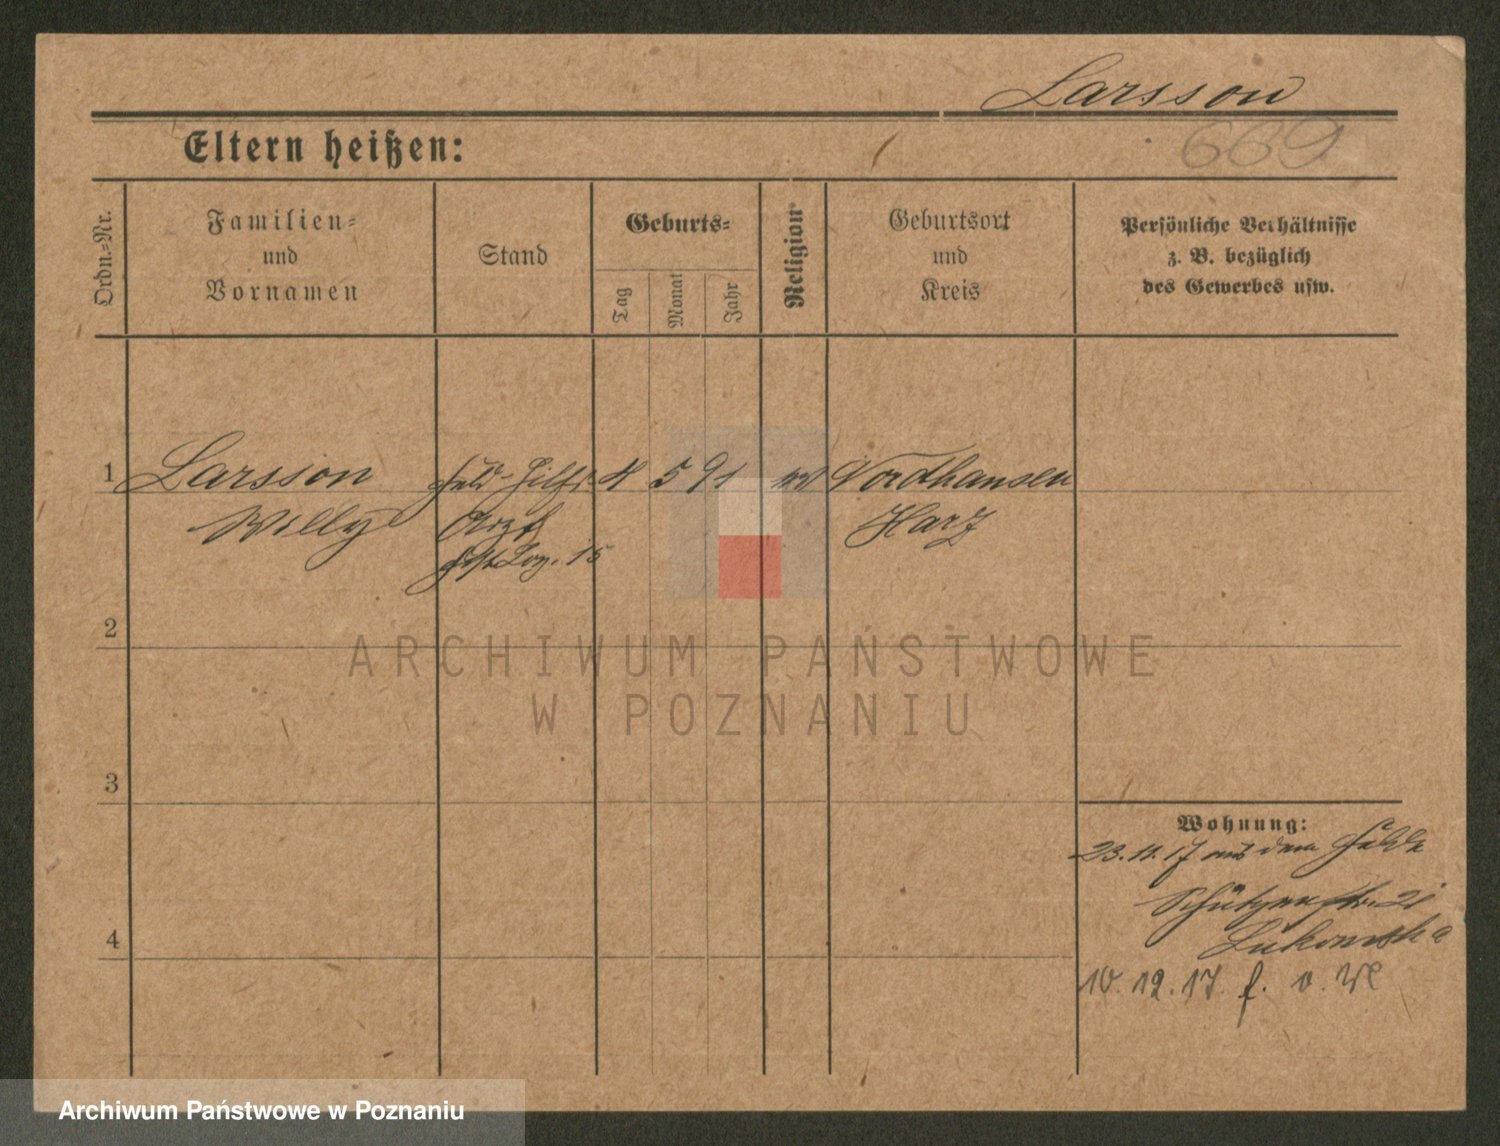 Larsson
669
Eltern heißen:
Ordn.=Nr.
Familien=
und
Vornamen
Stand
Geburts=
Tag
Monat
Jahr
Religion
Geburtsort
und
Kreis
Persönliche Verhältnisse
z. B. bezüglich
des Gewerbes usw.
1 Larsson Feld-Hilfs 4 5 91 Nordhausen
Willy Arzt Harz
Fest. Laz. 15
2
ARCHIWUM PAŃSTWOWE
W POZNANIU
3
Wohnung:
23.11.17 aus dem Felde
4 Schützenstr. 21
Lukowska
10.12.17. f. v. W
Archiwum Państwowe w Poznaniu